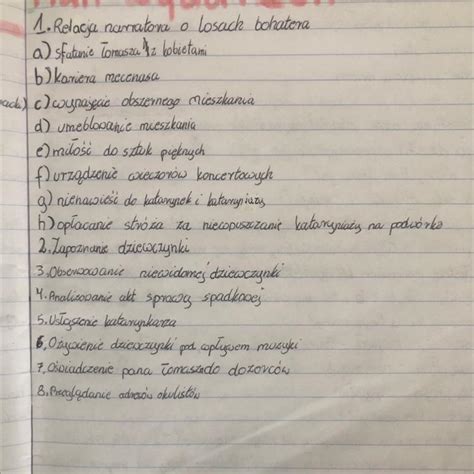 Plan wydarzeń
1. Relacja narratora o losach bohatera
a) sfatanie Tomasza z kobietami
b) kariera mecenasa
c) wynajęcie obszernego mieszkania
d) umeblowanie mieszkania
e) miłość do sztuk pięknych
f) urządzenie wieczorów koncertowych
g) nienawiść do katarynek i kataryniaży
h) opłacanie stróża za niewpuszczanie kataryniaży na podwórko
2. Zapoznanie dziewczynki
3. Obserwowanie niewidomej dziewczynki
4. Analizowanie akt sprawy spadkowej
5. Usłyszenie katarynkarza
6. Ożywienie dziewczynki pod wpływem muzyki
7. Oświadczenie pana Tomasza do dozorców
8. Przeglądanie adresów okulistów